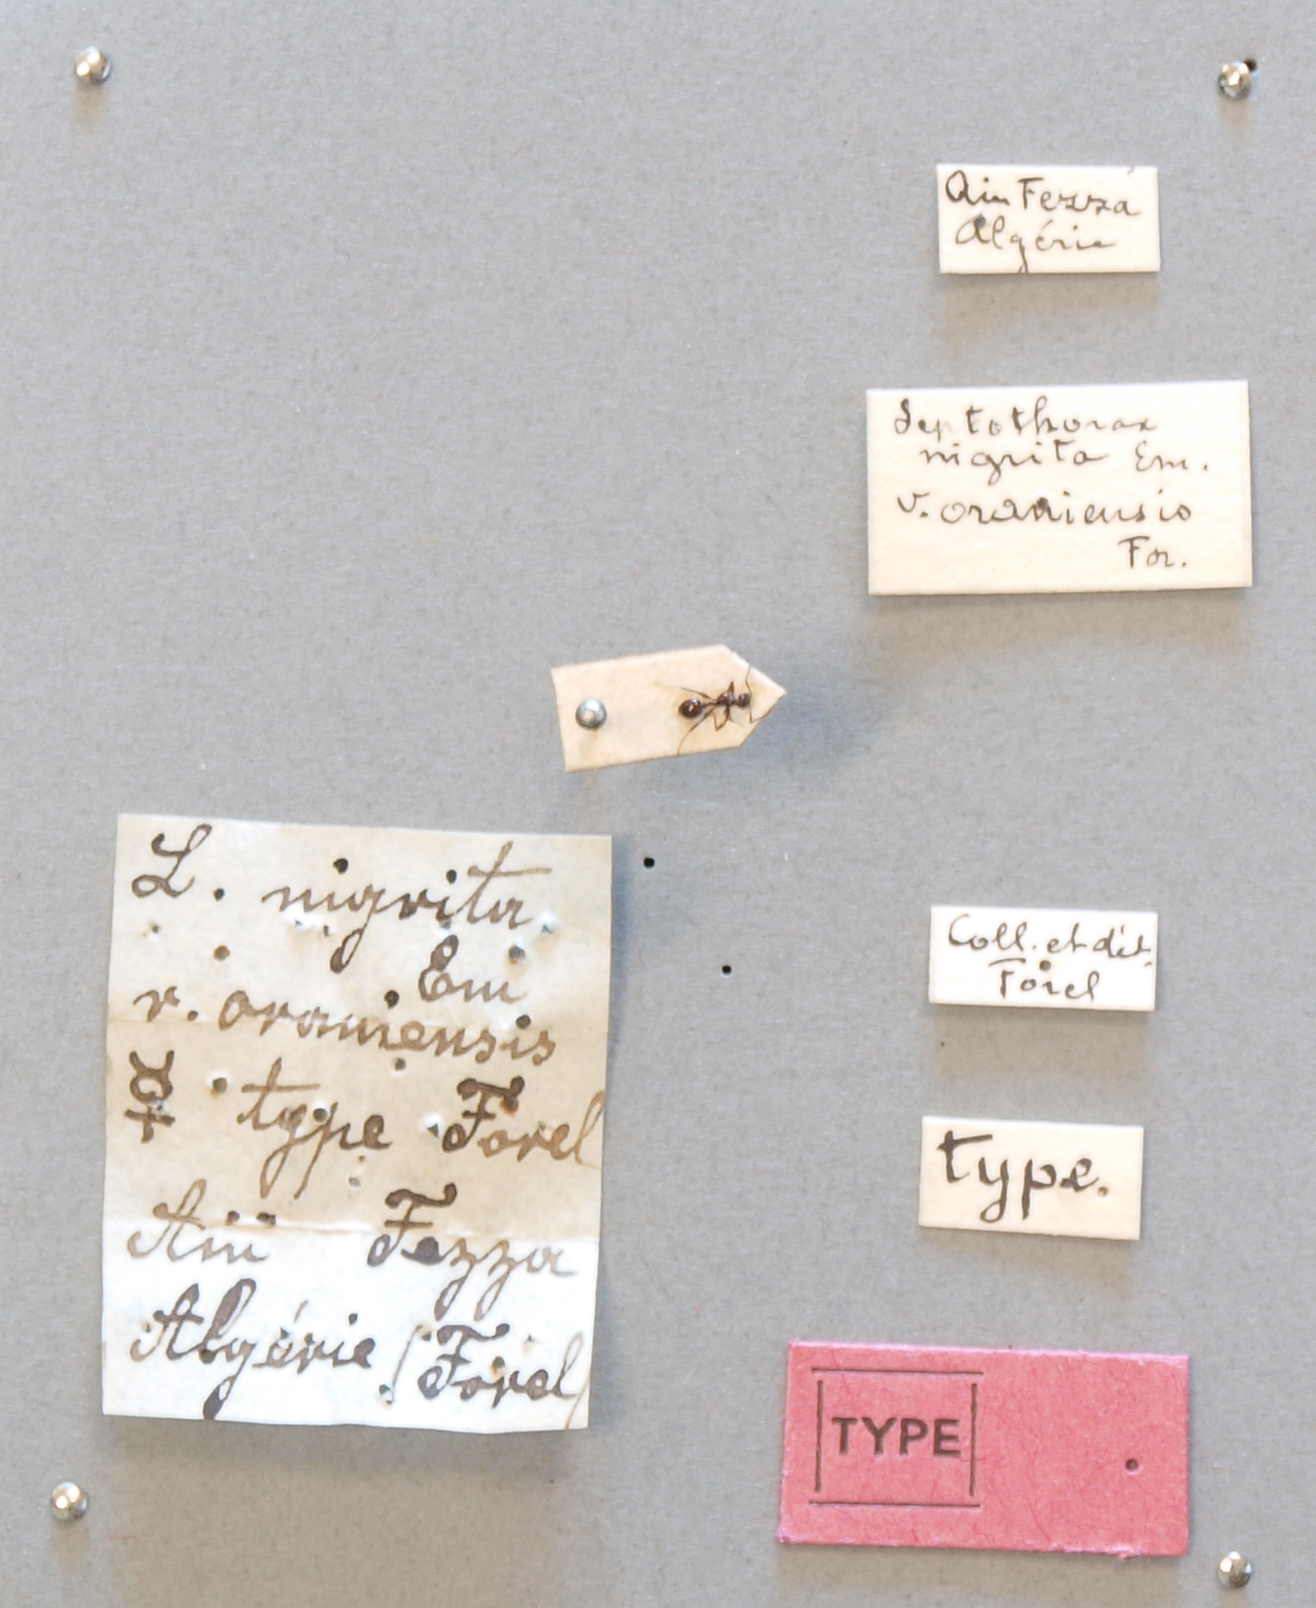 Ain Fezza
Algérie
Leptothorax
nigrita Em.
v. oraniensis
For.
L. nigrita
Em
r. oraniensis
☿ type Forel
Ain Fezza
Algérie (Forel)
Coll. et dét.
Forel
type.
TYPE